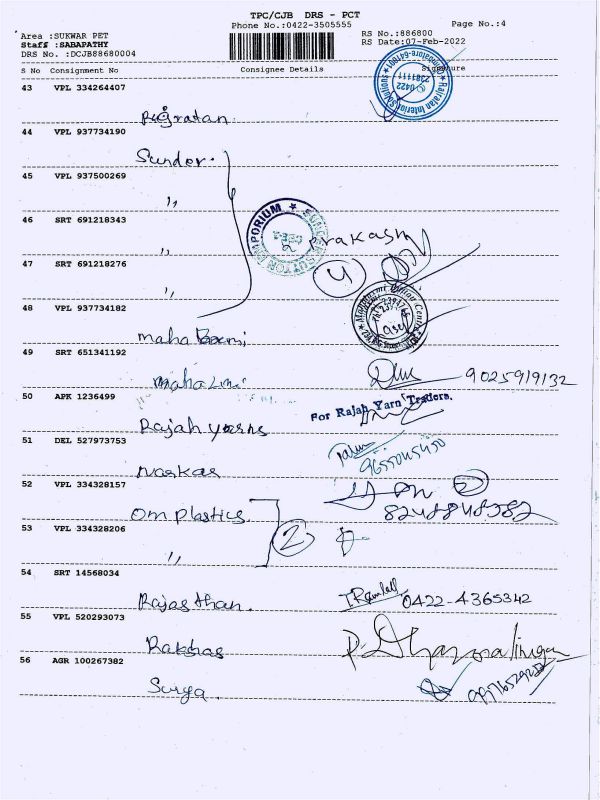 TPC/CJB DRS - PCT
Phone No.:0422-3505555
Page No.:4
Area :SUKWAR PET
RS No.:886800
Staff :SABAPATHY
RS Date:07-Feb-2022
DRS No. :DCJB88680004
S No Consignment No Consignee Details Signature
43 VPL 334264407
Rajratan
44 VPL 937734190
Sundor.
45 VPL 937500269
,,
46 SRT 691218343
Prakash
,,
47 SRT 691218276
4
,,
48 VPL 937734182
maha
49 SRT 651341192
9025919132
50 APK 1236499
For Rajah Yarn Traders.
Rajah yarns
51 DEL 527973753
9655045450
Naskas
52 VPL 334328157
2
Om plastics
8248848382
53 VPL 334328206
2
,,
54 SRT 14568034
Rajasthan.
0422-4365342
55 VPL 520293073
Rakshas
P. Dharmalingam
56 AGR 100267382
Surya.